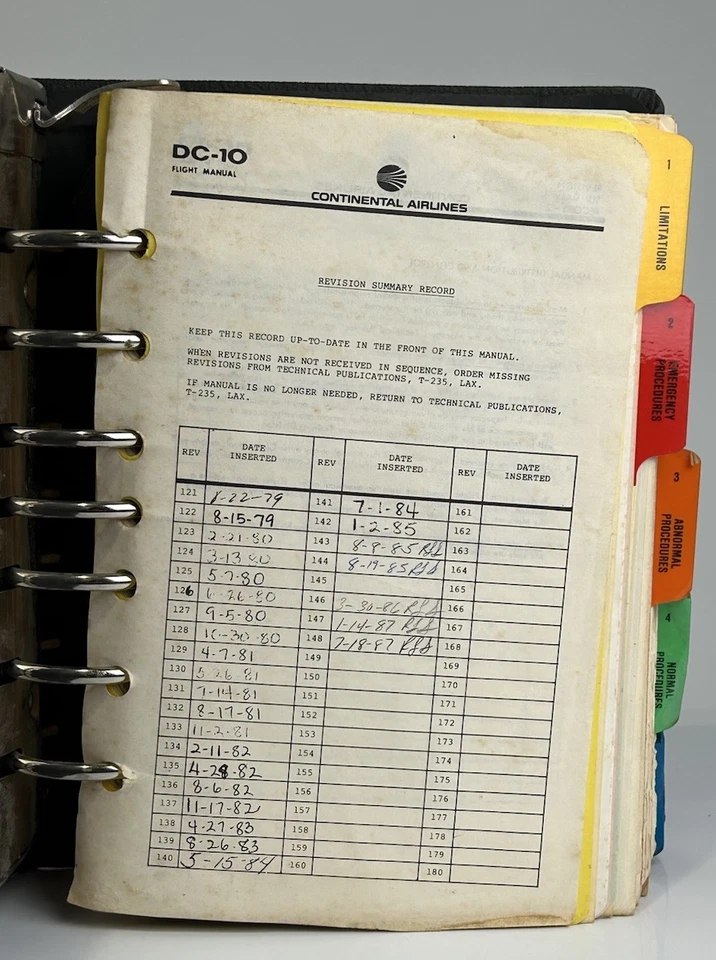 DC-10
FLIGHT MANUAL
CONTINENTAL AIRLINES
REVISION SUMMARY RECORD
KEEP THIS RECORD UP-TO-DATE IN THE FRONT OF THIS MANUAL.
WHEN REVISIONS ARE NOT RECEIVED IN SEQUENCE, ORDER MISSING
REVISIONS FROM TECHNICAL PUBLICATIONS, T-235, LAX.
IF MANUAL IS NO LONGER NEEDED, RETURN TO TECHNICAL PUBLICATIONS,
T-235, LAX.
REV DATE INSERTED REV DATE INSERTED REV DATE INSERTED
121 8-22-79 141 7-1-84 161
122 8-15-79 142 1-2-85 162
123 2-21-80 143 163
124 3-13-80 144 8-19-85 164
125 5-7-80 145 165
126 6-26-80 146 3-30-86 166
127 9-5-80 147 1-14-87 167
128 10-30-80 148 7-18-87 168
129 4-7-81 149 169
130 150 170
131 7-14-81 151 171
132 8-17-81 152 172
133 11-2-81 153 173
134 2-11-82 154 174
135 4-28-82 155 175
136 8-6-82 156 176
137 11-17-82 157 177
138 4-27-83 158 178
139 8-26-83 159 179
140 5-15-84 160 180
1
LIMITATIONS
2
EMERGENCY
PROCEDURES
3
ABNORMAL
PROCEDURES
4
NORMAL
PROCEDURES